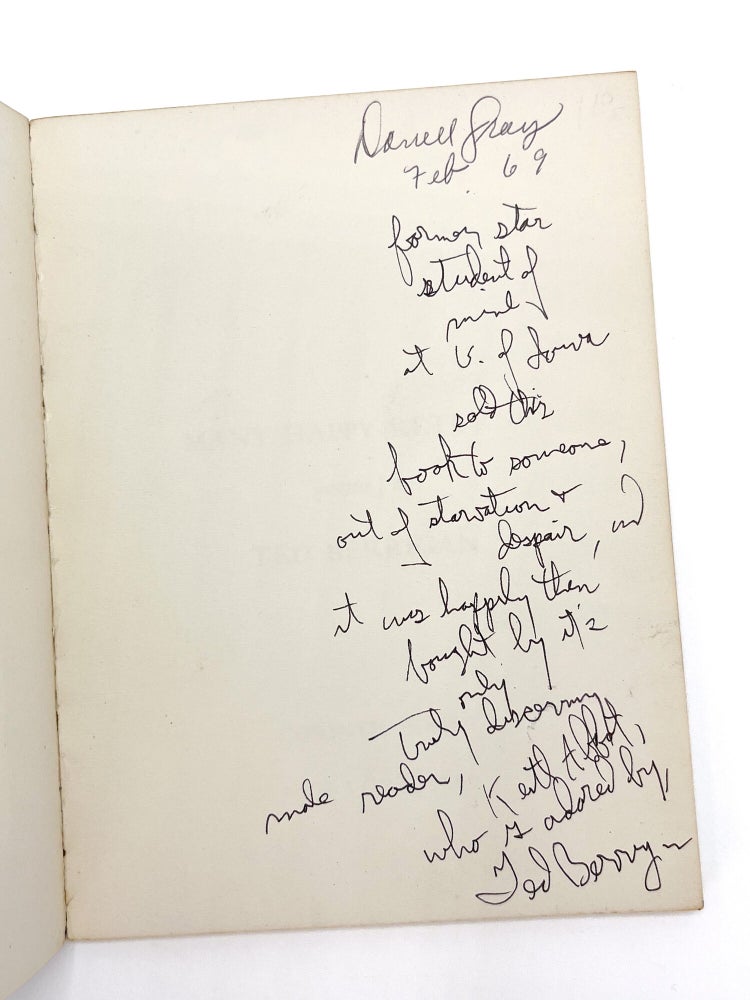 Darrell Gray
Feb 69
former star
student of
mine
at U. of Iowa
sold this
book to someone,
out of starvation &
despair, and
it was happily then
bought by it's
only
Truly discerning
male reader,
Keith Abbott,
who is adored by,
Ted Berrigan